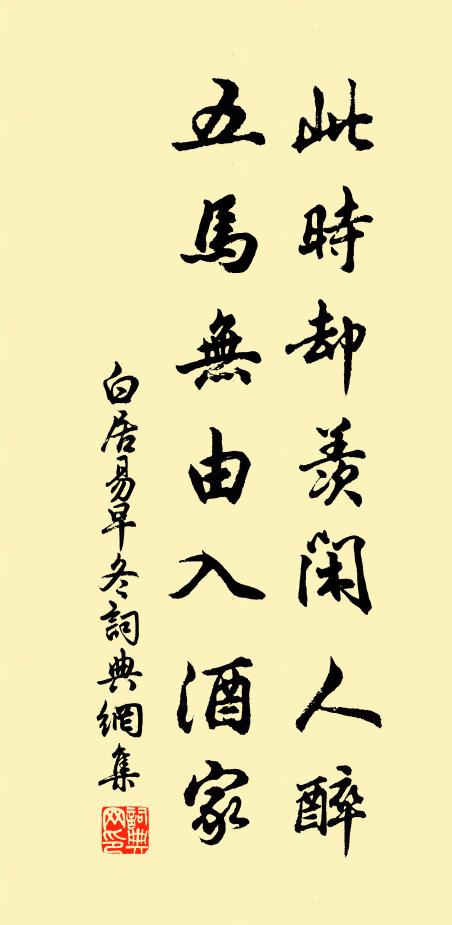 此時却羨閑人醉
五馬無由入酒家
白居易早冬詞典網集
詞典網印